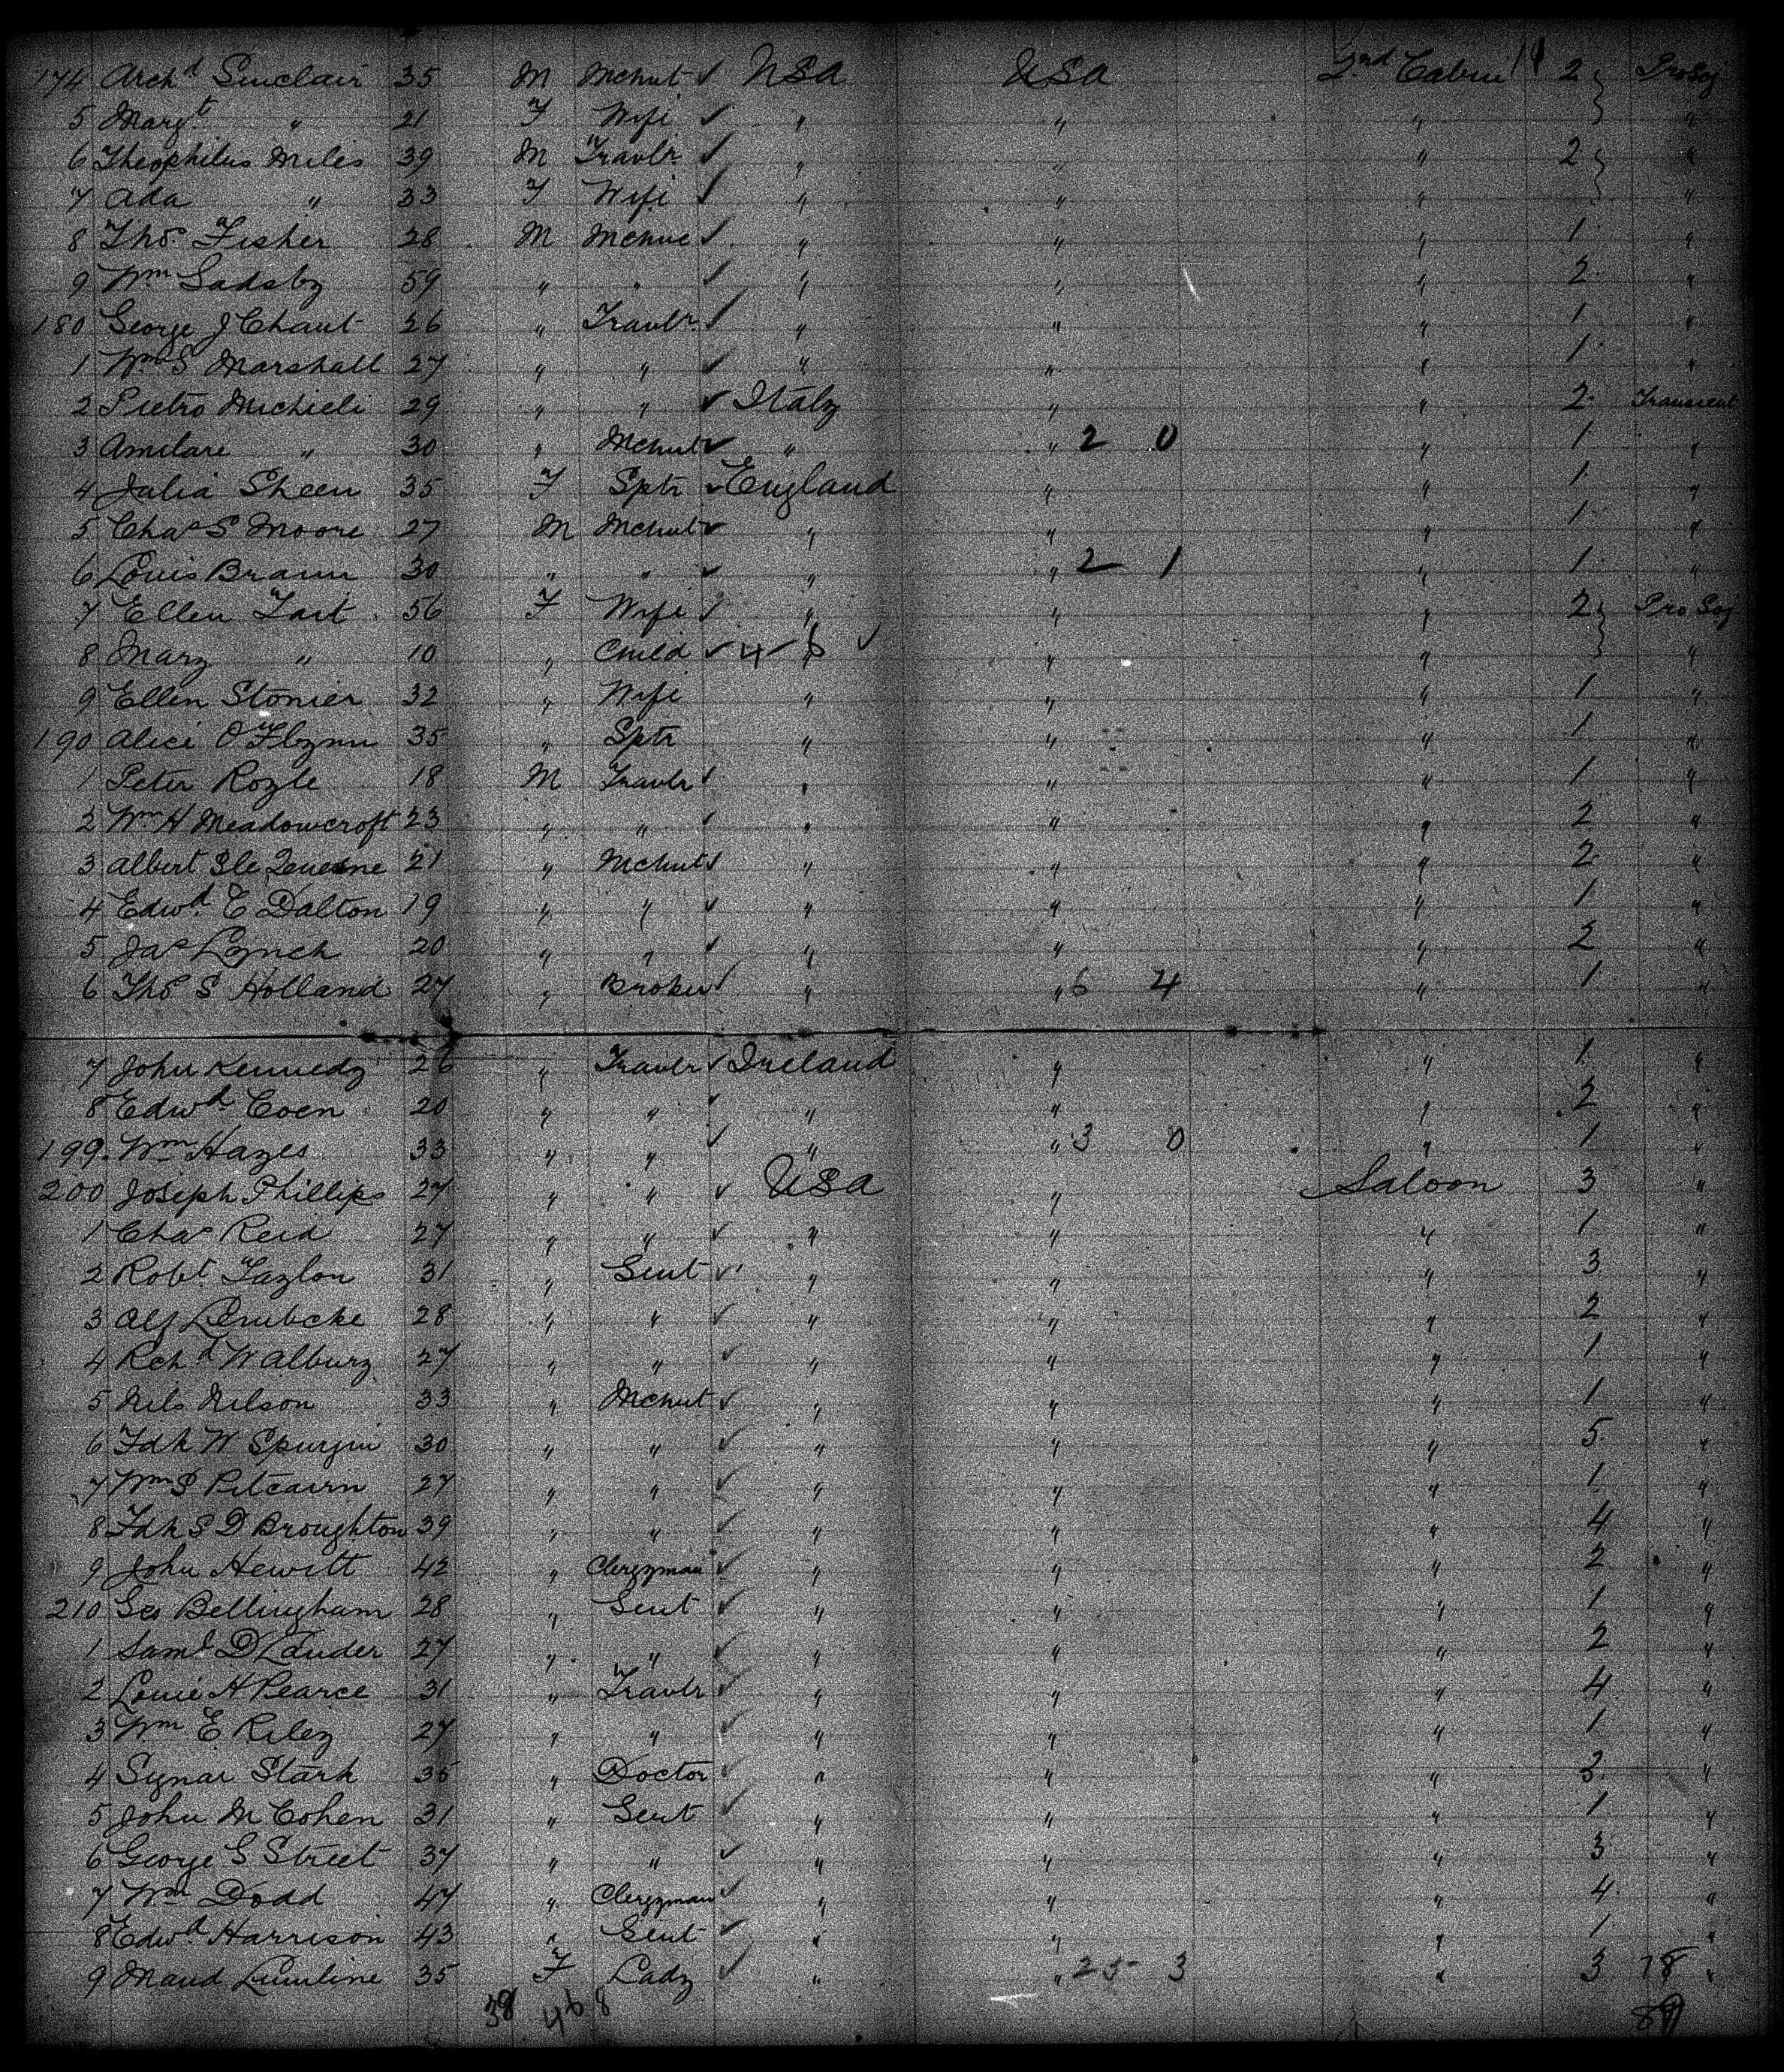 174 Archd Sinclair 35 M Mchnt ✓ USA USA 2nd Cabin 2 } Pro Soj
5 Margt " 21 F Wife ✓ " " " } "
6 Theophilus Miles 39 M Travlr ✓ " " " 2 } "
7 Ada " 33 F Wife ✓ " " " } "
8 Thos Fisher 28 M Mchnt ✓ " " " 1 "
9 Wm Sadsby 59 " " ✓ " " " 2 "
180 George J Chaut 26 " Travlr ✓ " " " 1 "
1 Wm S Marshall 27 " " ✓ " " " 1 "
2 Pietro Michieli 29 " " ✓ Italy " " 2 Transient
3 Amilare " 30 " Mchnt ✓ " " 2 0 " 1 "
4 Julia Sheen 35 F Sptr ✓ England " " 1 "
5 Chas S Moore 27 M Mchnt ✓ " " " 1 "
6 Louis Braun 30 " " ✓ " " 2 1 " 1 "
7 Ellen Tait 56 F Wife ✓ " " " 2 } Pro Soj
8 Mary " 10 " Child ✓ 4 ✓ 6 ✓ " " } "
9 Ellen Stonier 32 " Wife " " " 1 "
190 Alice O'Flynn 35 " Sptr " " " 1 "
1 Peter Royle 18 M Travlr ✓ " " " 1 "
2 Wm H Meadowcroft 23 " " ✓ " " " 2 "
3 Albert Le Quesne 21 " Mchnt ✓ " " " 2 "
4 Edwd E Dalton 19 " " ✓ " " " 1 "
5 Jas Lynch 20 " " ✓ " " " 2 "
6 Thos S Holland 27 " Broker ✓ " " 6 4 " 1 "
7 John Kennedy 26 " Travlr ✓ Ireland " " 1 "
8 Edwd Coen 20 " " ✓ " " " 2 "
199 Wm Hayes 33 " " ✓ " " 3 0 " 1 "
200 Joseph Phillips 27 " " ✓ USA " Saloon 3 "
1 Chas Reid 27 " " ✓ " " " 1 "
2 Robt Taylor 31 " Gent ✓ " " " 3 "
3 Alf Lembcke 28 " " ✓ " " " 2 "
4 Rchd W Albury 27 " " ✓ " " " 1 "
5 Nils Nilson 33 " Mchnt ✓ " " " 1 "
6 Fdk W Spurgin 30 " " ✓ " " " 5 "
7 Wm S Pitcairn 27 " " ✓ " " " 1 "
8 Fdk S D Broughton 39 " " ✓ " " " 4 "
9 John Hewitt 42 " Clergyman ✓ " " " 2 "
210 Geo Bellingham 28 " Gent ✓ " " " 1 "
1 Saml D Lauder 27 " " ✓ " " " 2 "
2 Louie H Pearce 31 " Travlr ✓ " " " 4 "
3 Wm E Riley 27 " " ✓ " " " 1 "
4 Stark 35 " Doctor ✓ " " " 3 "
5 John M Cohen 31 " Gent ✓ " " " 1 "
6 George S Street 37 " " ✓ " " " 3 "
7 Wm Dodd 47 " Clergyman ✓ " " " 4 "
8 Edwd Harrison 43 " Gent ✓ " " " 1 "
9 Maud 35 F Lady ✓ " " 25 3 " 3 78 "
38 46 8 89